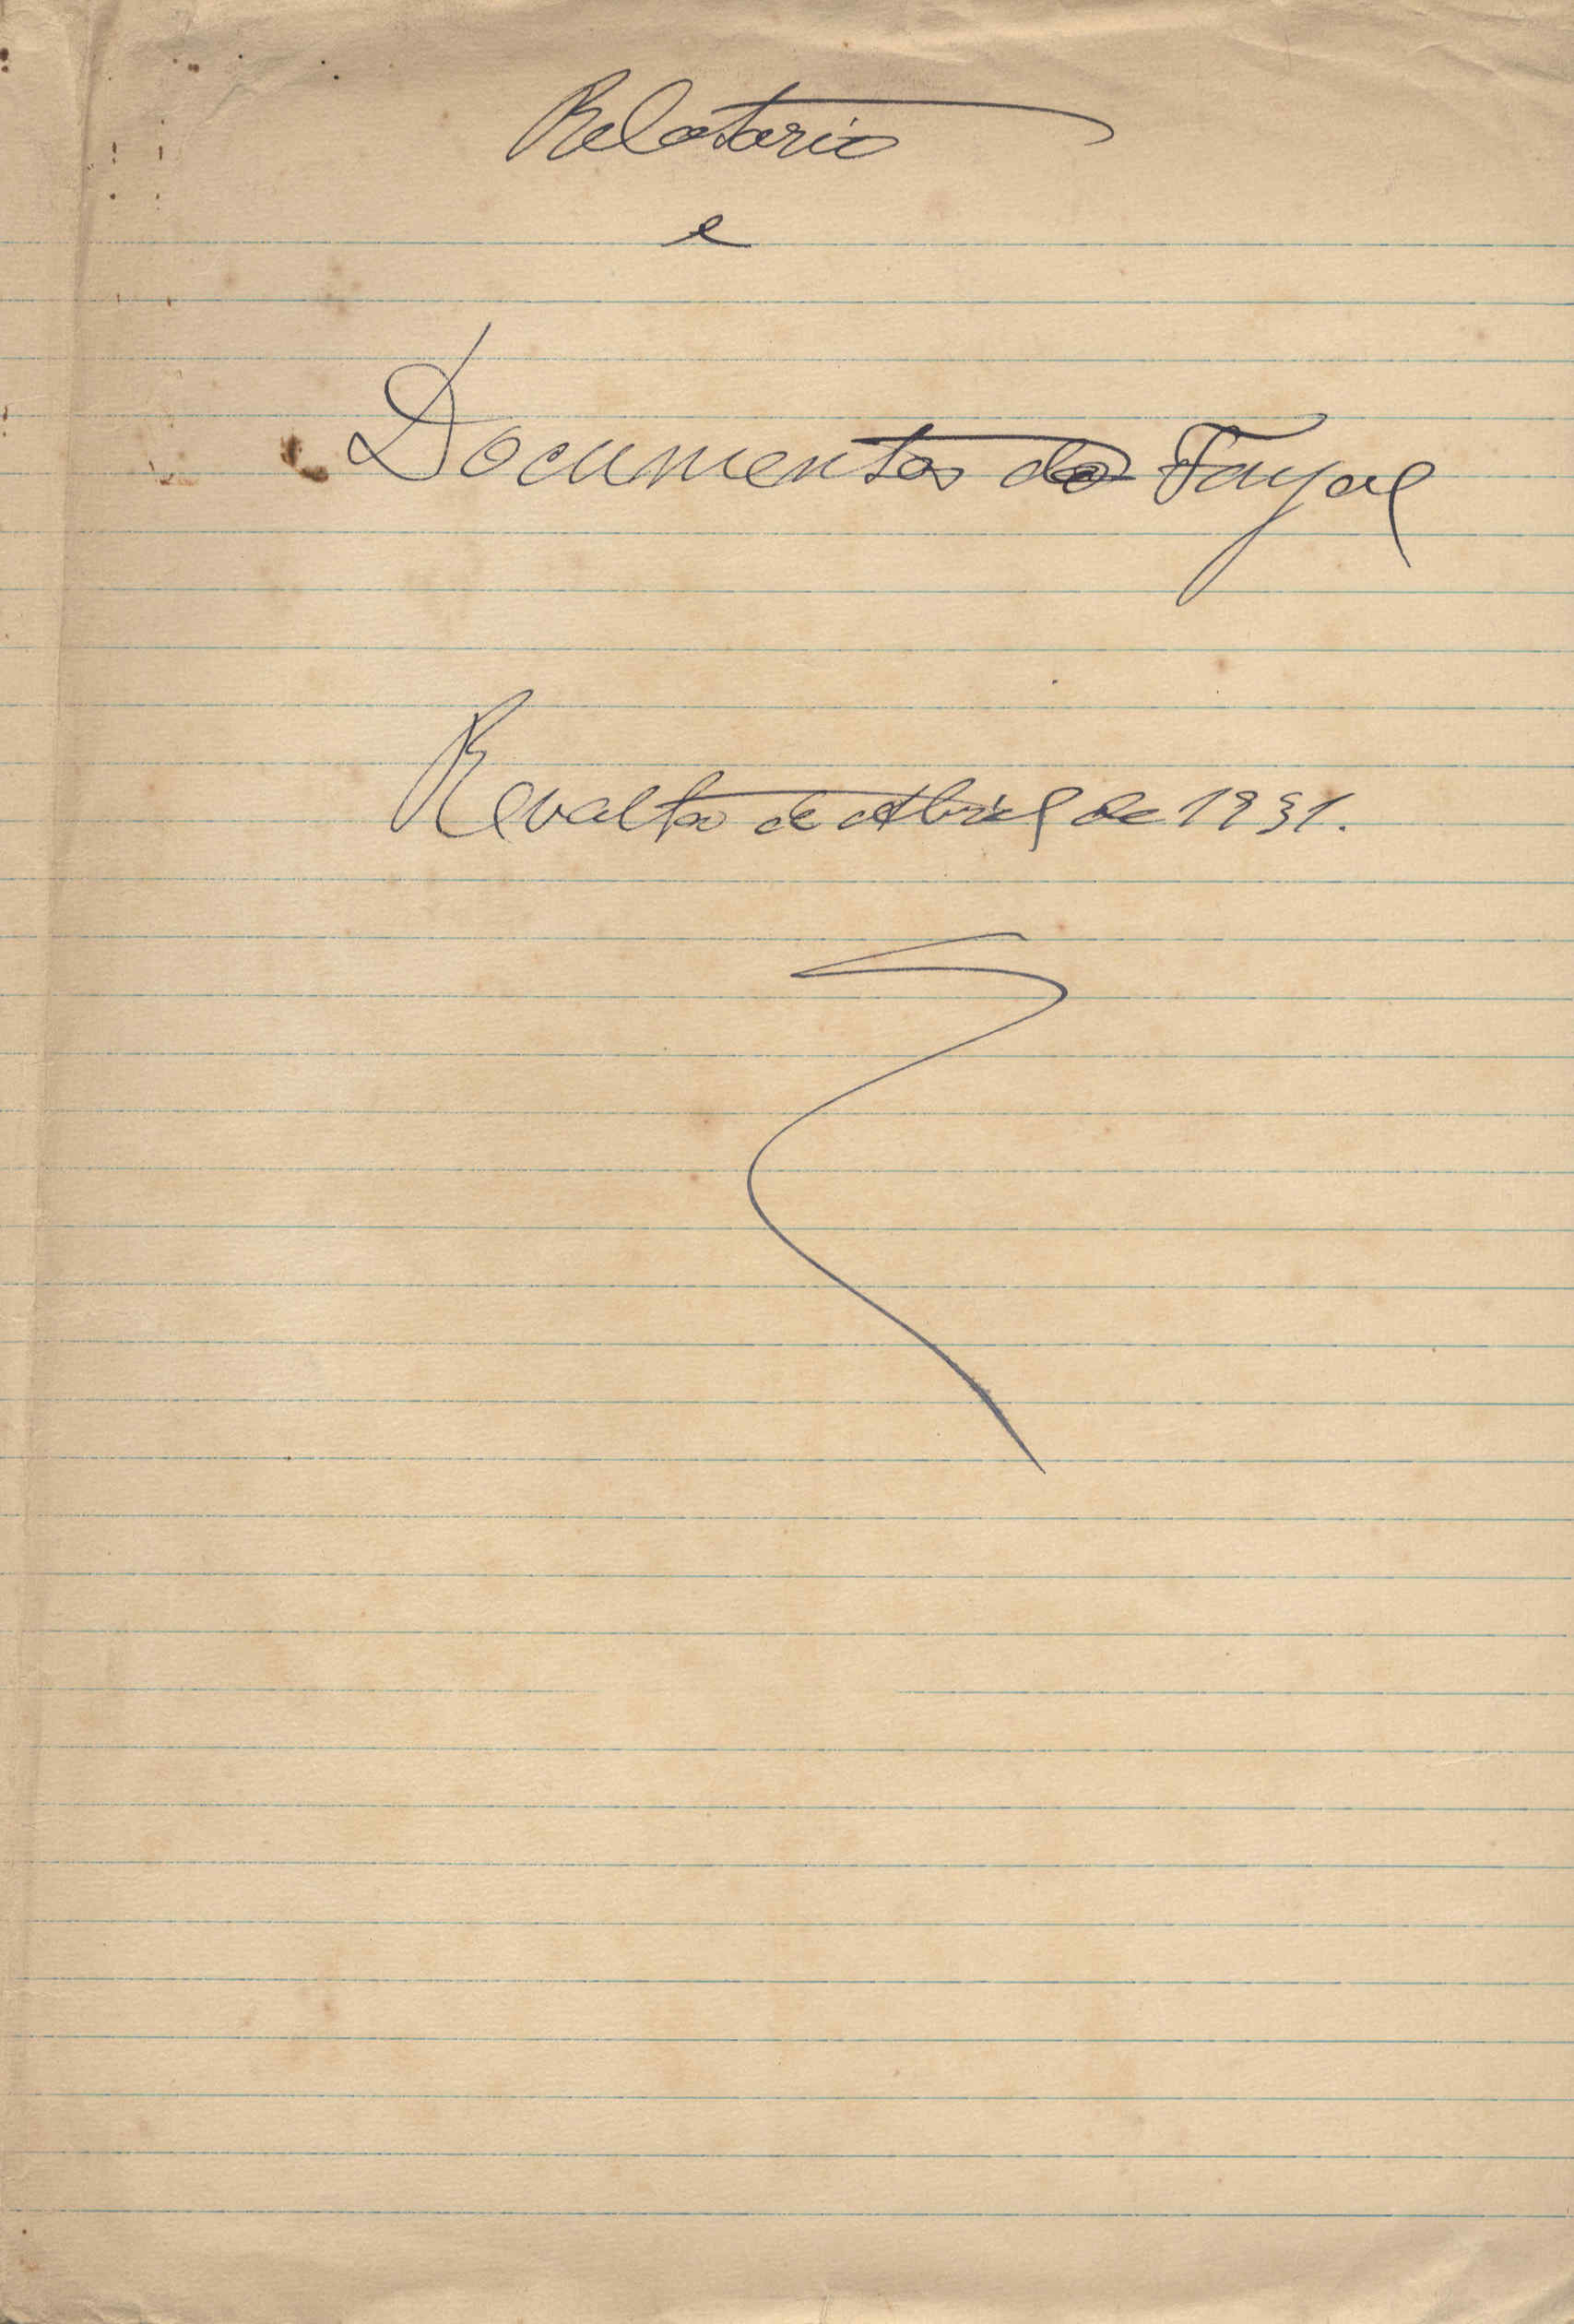 Relatorio
e
Documentos do Fayal
Revolta de Abril de 1931.